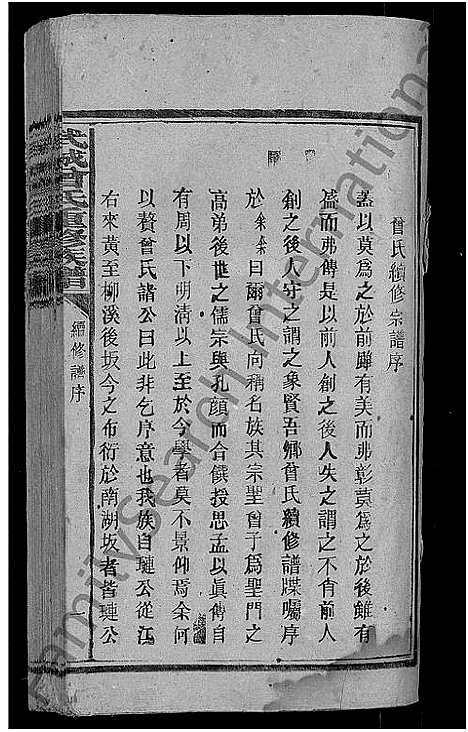 曾氏續修宗譜序
蓋以莫為之於前雖有美而弗彰莫為之於後雖有
盛而弗傳是以前人創之後人失之謂之不肖前人
創之後人守之謂之象賢吾鄉曾氏續修譜牒囑序
於余余曰爾曾氏向稱名族其宗聖曾子為聖門之
高弟後世之儒宗與孔顏而合饌授思孟以眞傳自
有周以下明清以上至於今學者莫不景仰焉余何
以贅曾氏諸公曰此非乞序意也我族自璉公從江
右來黃至柳溪後坂今之布衍於南湖坂者皆璉公
武城曾氏重修族譜
續修譜序
FamilySearch International